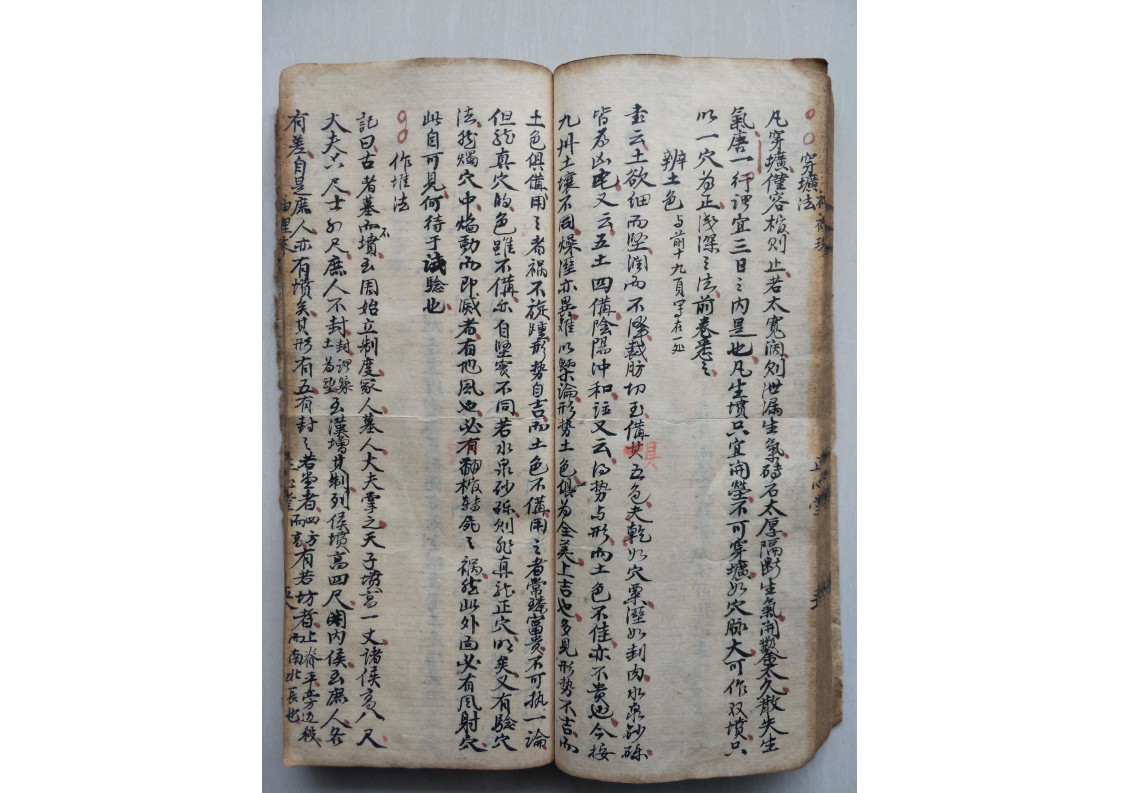 穿壙法
凡穿壙僅容棺則止若太寬濶則泄漏生氣磚石太厚隔斷生氣開鑿太久散失生
氣唐一行謂宜三日之内是也凡生墳只宜開塋不可穿壙如穴脉大可作双墳只
以一穴為正浅深之法前卷悉之
辨土色 与前十九頁字在一处
書云土欲细而坚润而不澤裁肪切玉備其五色夫乾如穴粟溼如刲肉水泉砂礫
皆為凶宅又云五土四備陰陽冲和註又云得势与形而土色不佳亦不贵也今按
九州土壤不同燥溼亦異難以槩論形势土色俱為全美上吉也多見形势不吉而
土色俱備用之者禍不旋踵形势自吉而土色不備用之者常臻富贵不可执一論
但龍真穴的色雖不備亦自坚实不同若水泉砂砾则非真龍正穴明矣又有驗穴
法然燭穴中焰動而即滅者有地風也必有翻棺转屍之禍然此外面必有風射穴
此自可見何待于試驗也
作堆法
記曰古者墓而不墳至周始立制度冢人墓人大夫掌之天子墳高一丈諸侯高八尺
大夫六尺士四尺庶人不封封謂築土為壟至漢增其制列侯墳高四尺関内侯至庶人各
有差自是庶人亦有墳矣其形有五有封之若堂者四方而高有若坊者上脊平旁边殺而南北長也